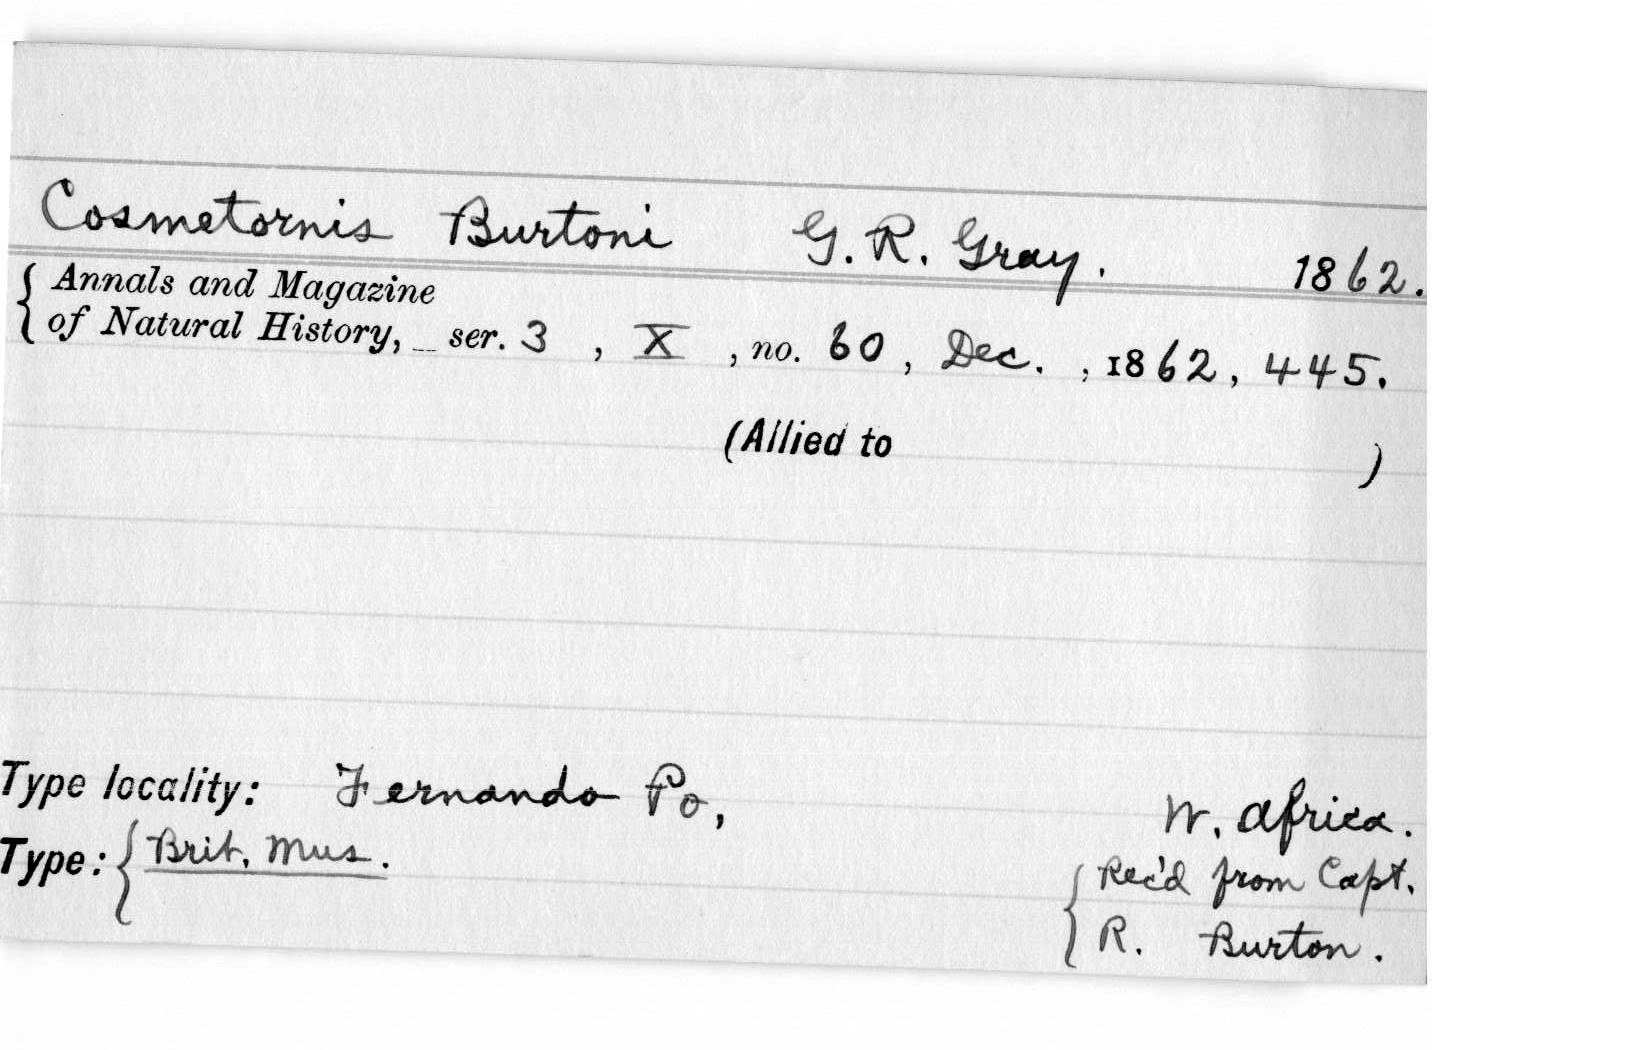 Cosmetornis Burtoni G. R. Gray. 1862.
Annals and Magazine
of Natural History, ser. 3, X, no. 60, Dec., 1862, 445.
(Allied to )
Type locality: Fernando Po, W. Africa.
Type: Brit. Mus. Rec'd from Capt.
R. Burton.